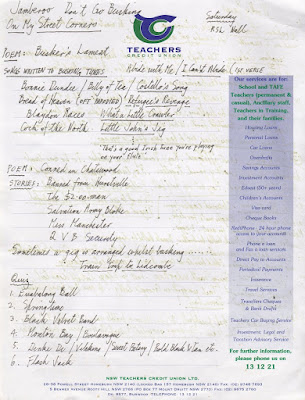 Jamberoo Don't Go Busking
On My Street Corners
Saturday
RSL Hall
TEACHERS
CREDIT UNION
POEM: Busker's Lament
SONGS WRITTEN TO BUSKING TUNES
Waltz with Me / I Can't Waltz (1st VERSE
Bonnie Dundee / Billy of Tea / Costello's Song
Bread of Heaven (OFT PARODIED) Refugee's Revenge
Blaydon Races What a Little Crawler
Cock of the North Little Johnny's Jag
That's a good Irish tune you're playing
on your flute
POEM: Conned in Chatswood
STORIES: Banned from
The $2 ex-man
Salvation Army Bloke
Miss Manchester
Q V B Security
Sometimes a gig is arranged whilst busking ......
Train Trip to Lidcombe
Quiz
1. Eumalong Ball
2. Springtime
3. Black Velvet Band
4. Moreton Bay / Boulavogue
5. Dinki Di / / Sweet Betsy / Bold Black Man etc.
6. Flash Jack
Our services are for:
School and TAFE
Teachers (permanent &
casual), Ancillary staff,
Teachers in Training,
and their families.
Ongoing Loans
Personal Loans
Car Loans
Overdrafts
Savings Accounts
Investment Accounts
Edsaci (50+ years)
Children's Accounts
Visa card
Cheque Books
24 hour phone
access to your account
Phone a loan
and Fax a loan services
Direct Pay to Accounts
Periodical Payments
Insurance
Travel Services
Travellers Cheques
& Bank Drafts
Teachers Car Buying Service
Investment, Legal and
Taxation Advisory Service
For further information,
please phone us on
13 12 21
NSW TEACHERS CREDIT UNION LTD.